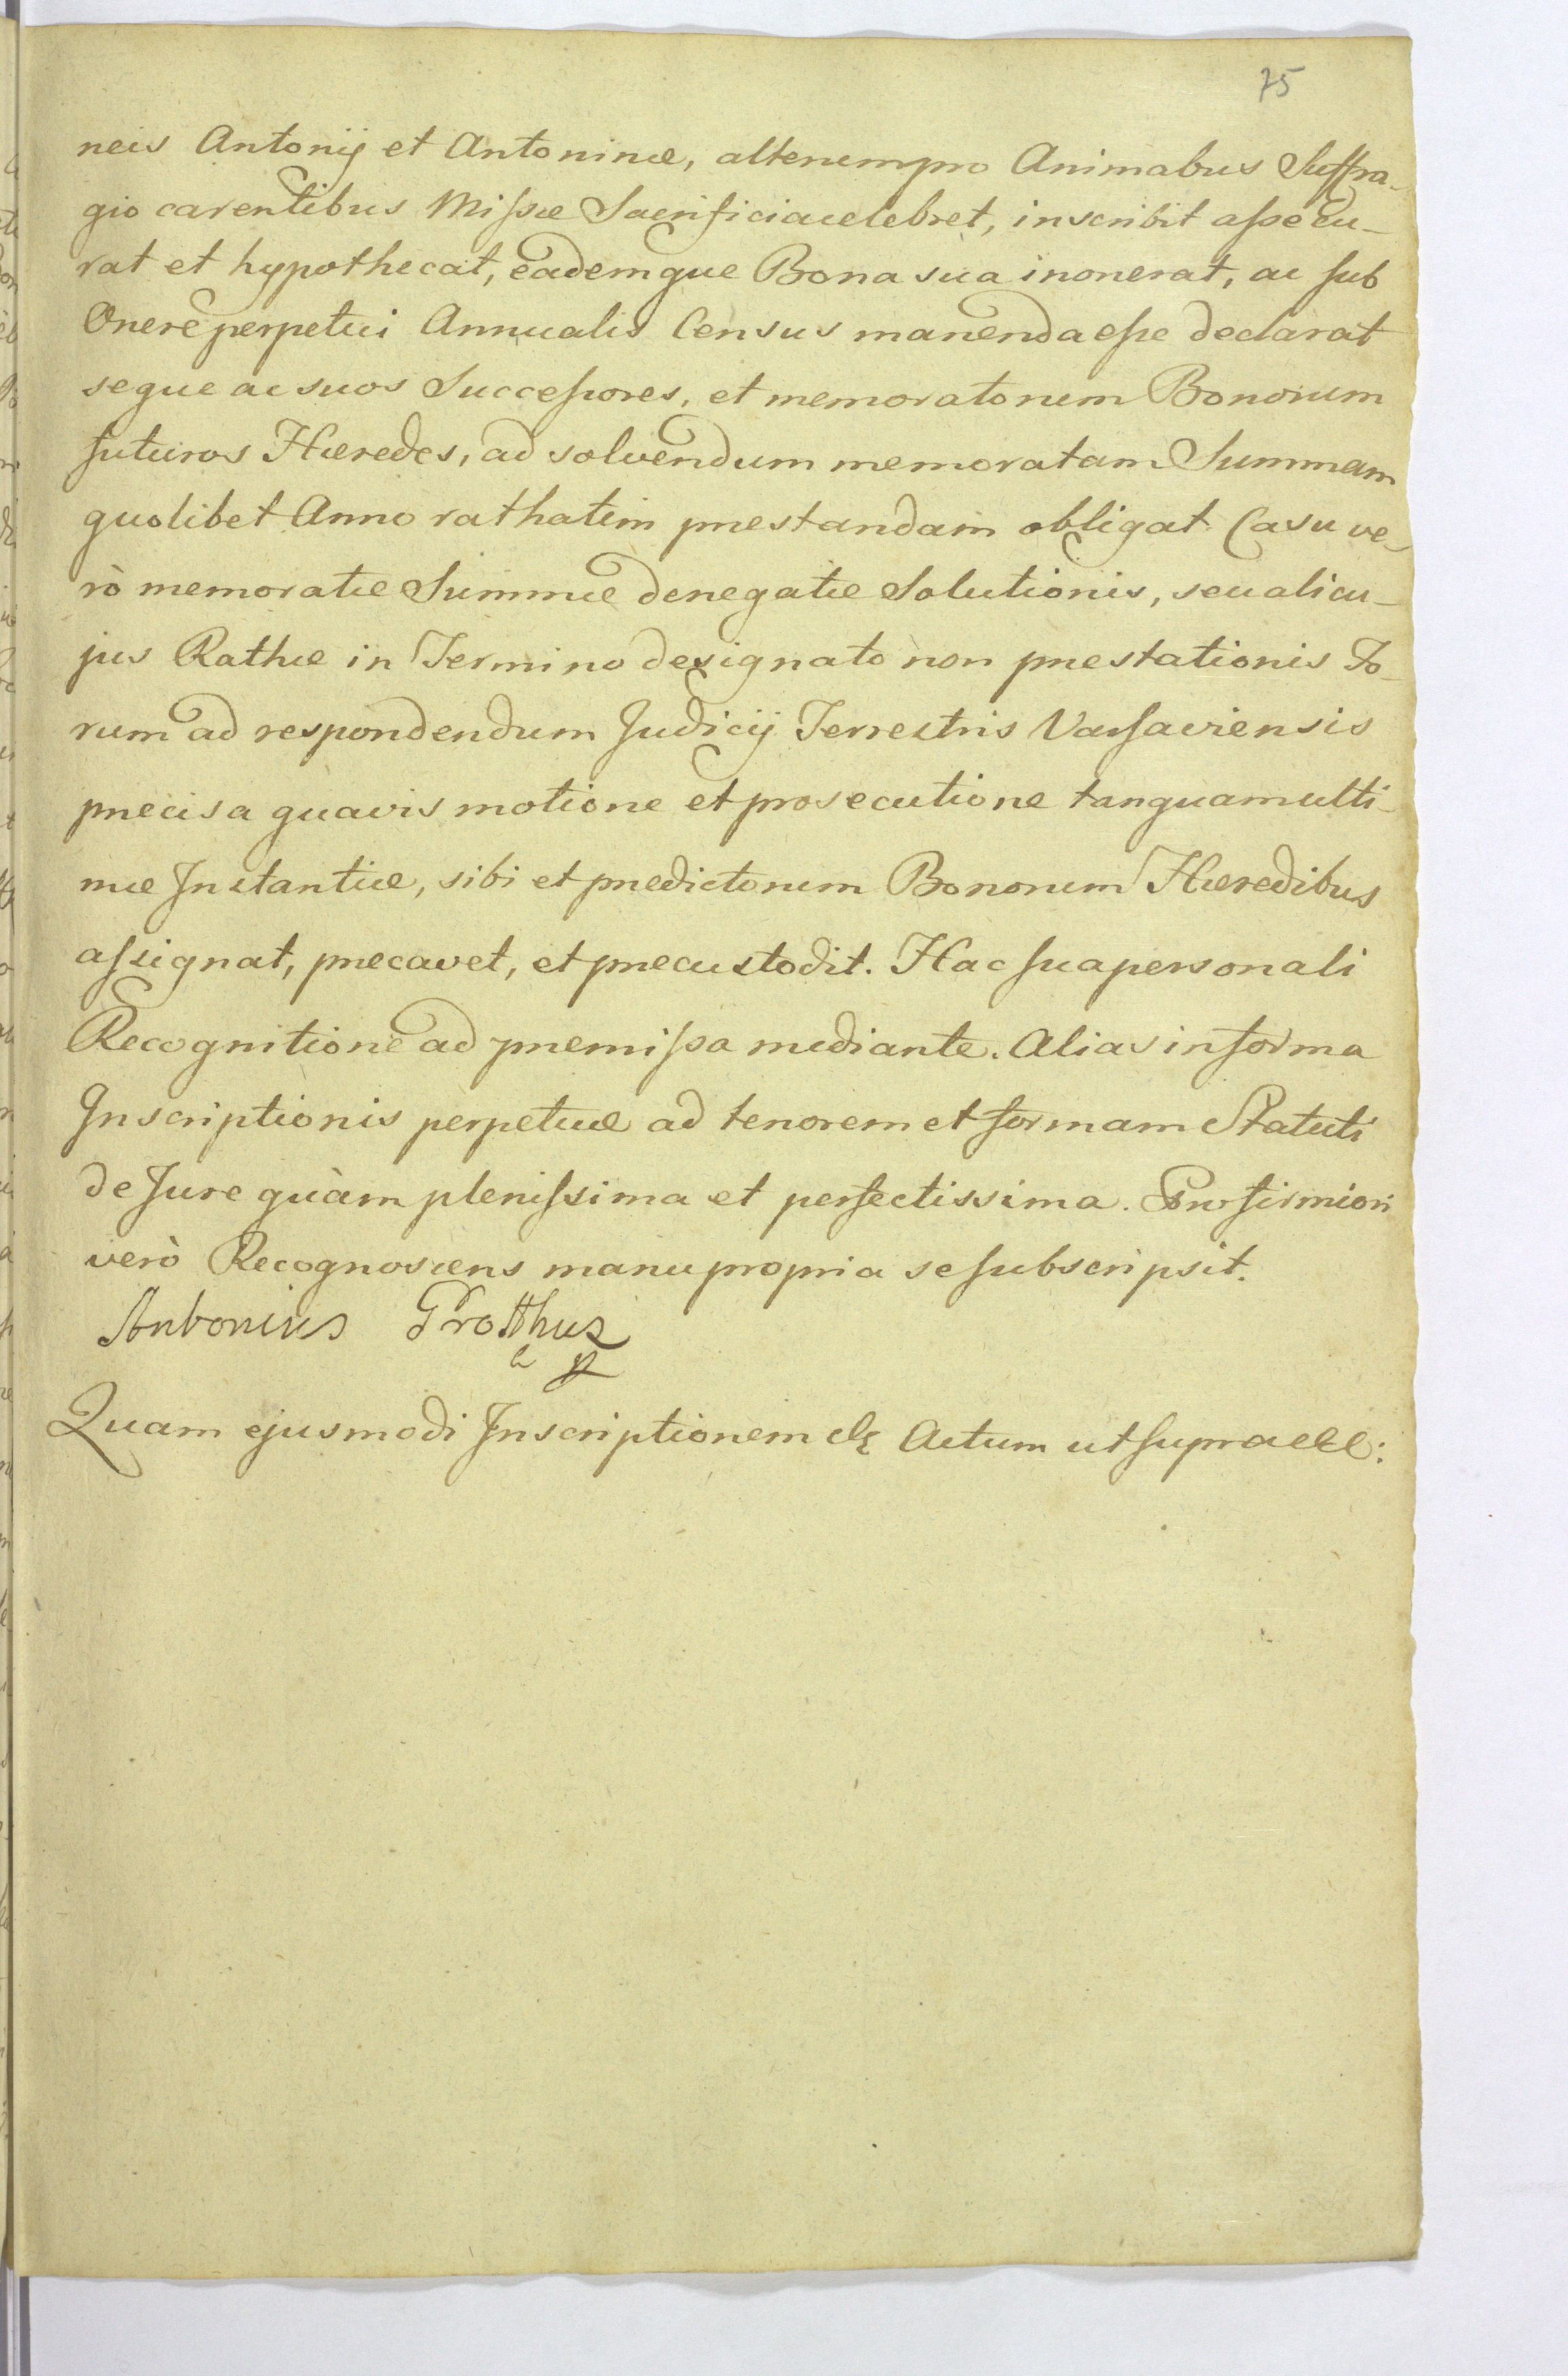 75
neis Antonij et Antoninæ, alterum pro Animabus Suffra-
gio carentibus Missæ Sacrificia celebret, inscribit assecu-
rat et hypothecat, eademque Bona sua inonerat, ac sub
Onere perpetui Annualis Census manenda esse declarat
seque ac suos Successores, et memoratorum Bonorum
futuros Hæredes, ad solvendum memoratam Summam
quolibet Anno rathatim præstandam obligat Casu ve-
rò memoratæ Summæ denegatæ Solutionis, seu alicu-
jus Rathæ in Termino designato non præstationis Fo-
rum ad respondendum Judicij Terrestris Varsaviensis
præcisa quavis motione et prosecutione tanquam ulti-
mæ Instantiæ, sibi et prædictorum Bonorum Hæredibus
assignat, præcavet, et præcustodit. Hac sua personali
Recognitione ad præmissa mediante. Alias in forma
Inscriptionis perpetuæ ad tenorem et formam Statuti
de Jure quàm plenissima et perfectissima. Pro firmiori
verò Recognoscens manu propria se subscripsit.
Antonius Grotthus
Quam ejusmodi Inscriptionem etc Actum ut supra etc: